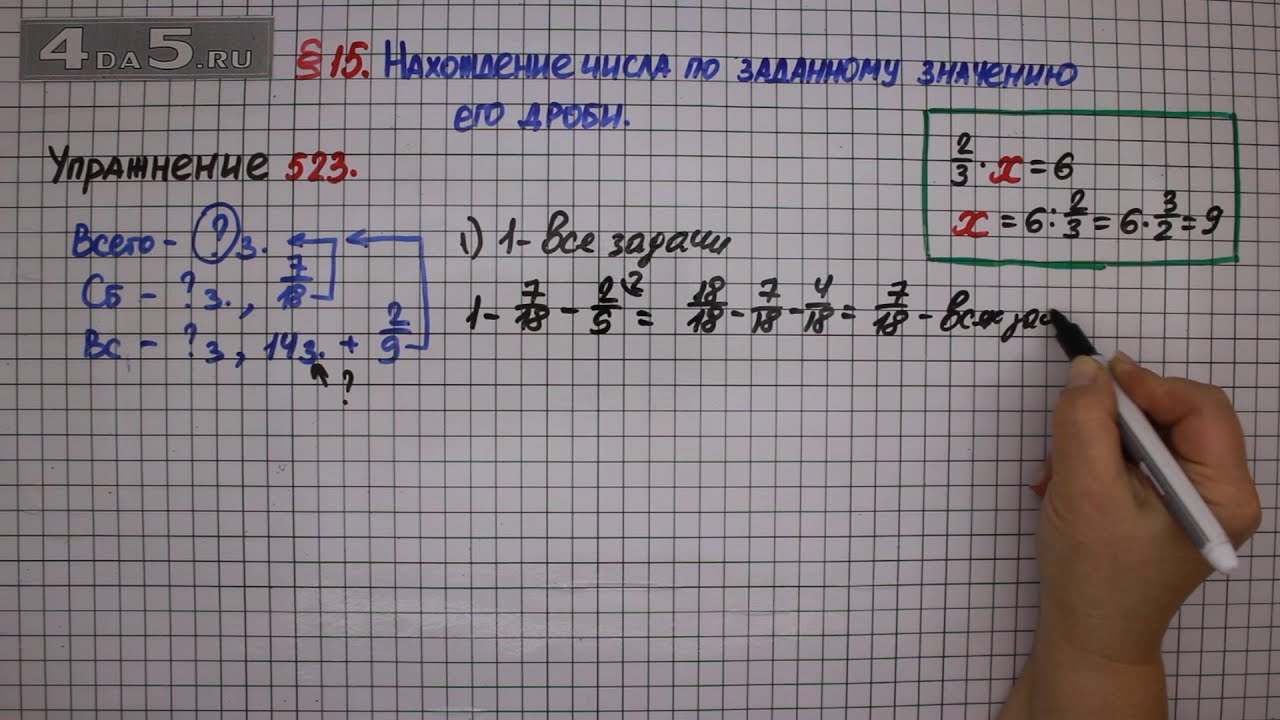 4DA5.RU
§ 15. Нахождение числа по заданному значению
его дроби.
Упражнение 523.
2/3 · x = 6
x = 6 : 2/3 = 6 · 3/2 = 9
Всего - ? з.
Сб - ? з., 7/18
Вс - ? з, 14 з. + 2/9
?
1) 1 - все задачи
1 - 7/18 - 2/5 ² = 18/18 - 7/18 - 4/18 = 7/18 -